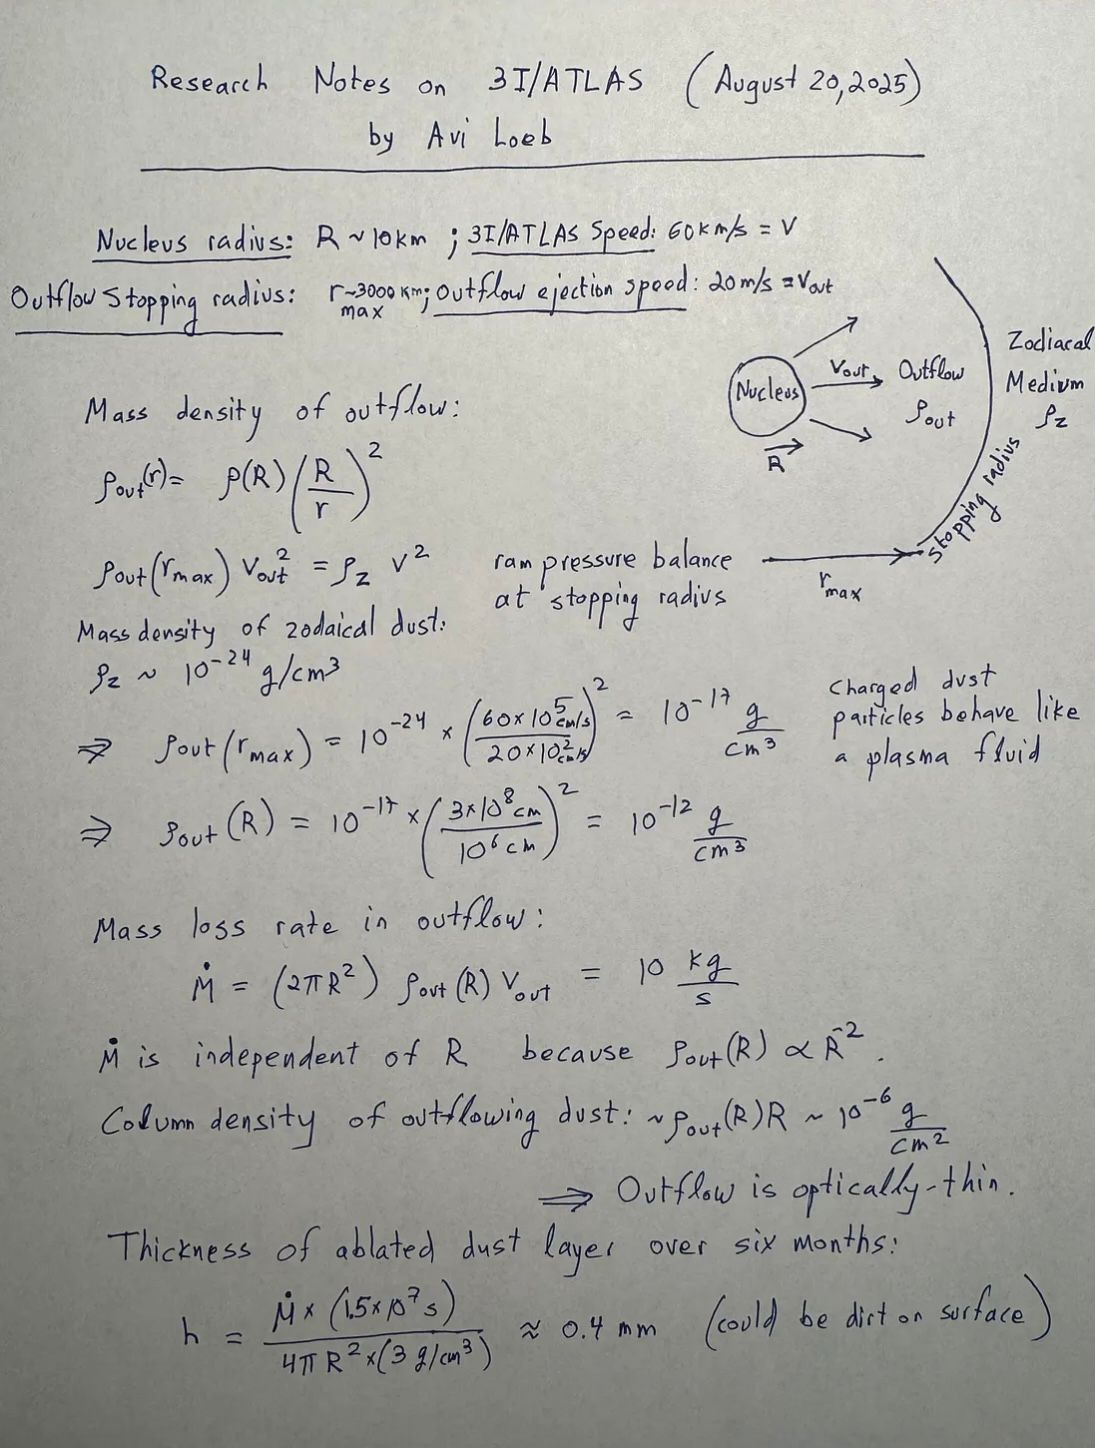 Research Notes on 3I/ATLAS (August 20, 2025)
by Avi Loeb
Nucleus radius: R ~ 10 km ; 3I/ATLAS Speed: 60 km/s = V
Outflow Stopping radius: r_max ~ 3000 km; Outflow ejection speed: 20 m/s = V_out
Nucleus
V_out
Outflow
ρ_out
R
Zodiacal
Medium
ρ_z
stopping radius
r_max
Mass density of outflow:
ρ_out(r) = ρ(R) (R/r)^2
ρ_out(r_max) V_out^2 = ρ_z V^2
ram pressure balance
at stopping radius
Mass density of zodaical dust:
ρ_z ~ 10^-24 g/cm^3
⇒ ρ_out(r_max) = 10^-24 × (60×10^5 cm/s / 20×10^2 cm/s)^2 = 10^-17 g/cm^3
charged dust
particles behave like
a plasma fluid
⇒ ρ_out(R) = 10^-17 × (3×10^8 cm / 10^6 cm)^2 = 10^-12 g/cm^3
Mass loss rate in outflow:
Ṁ = (2πR^2) ρ_out(R) V_out = 10 kg/s
Ṁ is independent of R because ρ_out(R) ∝ R^-2.
Column density of outflowing dust: ~ρ_out(R)R ~ 10^-6 g/cm^2
⇒ Outflow is optically-thin.
Thickness of ablated dust layer over six months:
h = Ṁ × (1.5×10^7 s) / 4πR^2×(3 g/cm^3) ≈ 0.4 mm (could be dirt on surface)